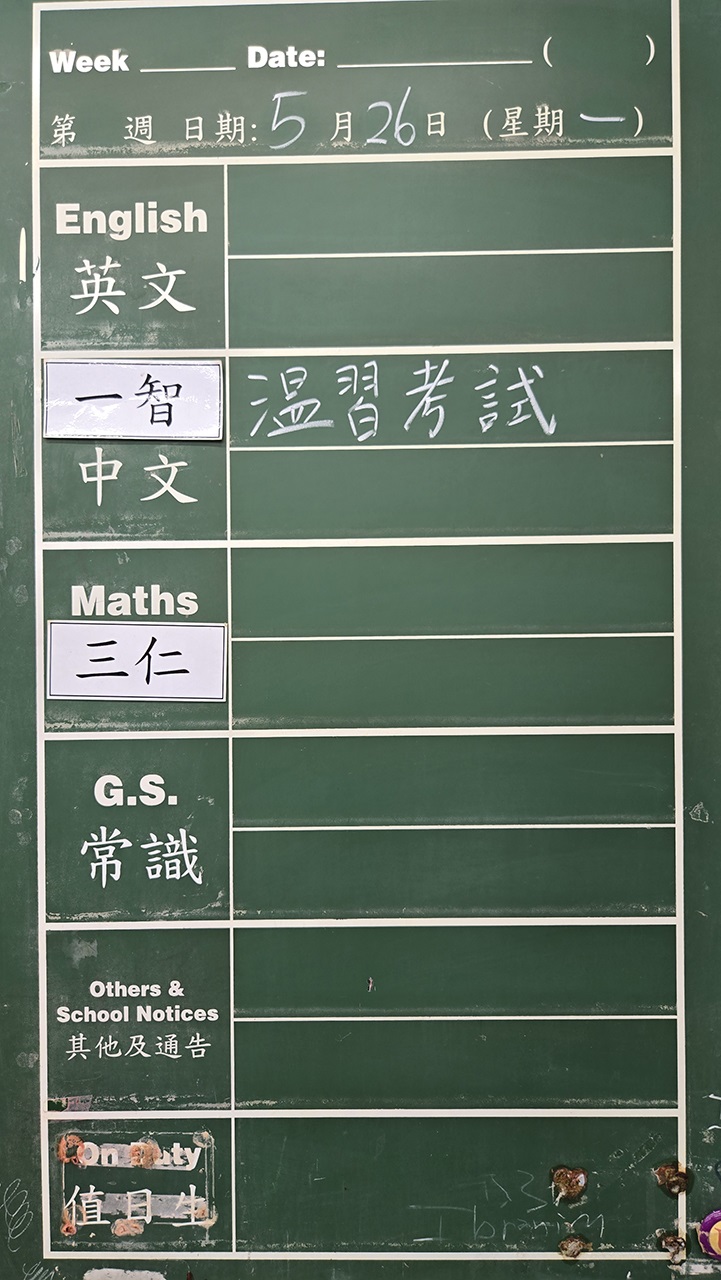 Week ______ Date: ______________ (    )
第 週 日期: 5 月 26 日 (星期 一)
English
英文
一智
温習考試
中文
Maths
三仁
G.S.
常識
Others &
School Notices
其他及通告
On Duty
值日生
Ibrahim